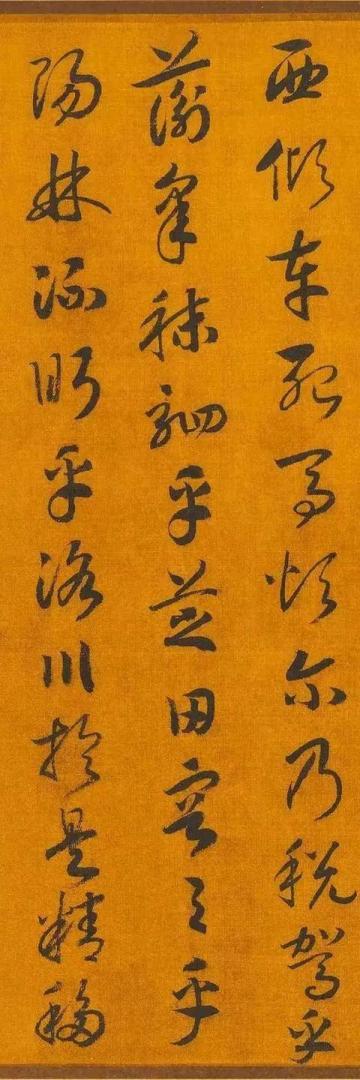 西傾車殆馬煩尔乃税駕乎
蘅皋秣駟乎芝田容与乎
陽林流眄乎洛川於是精移